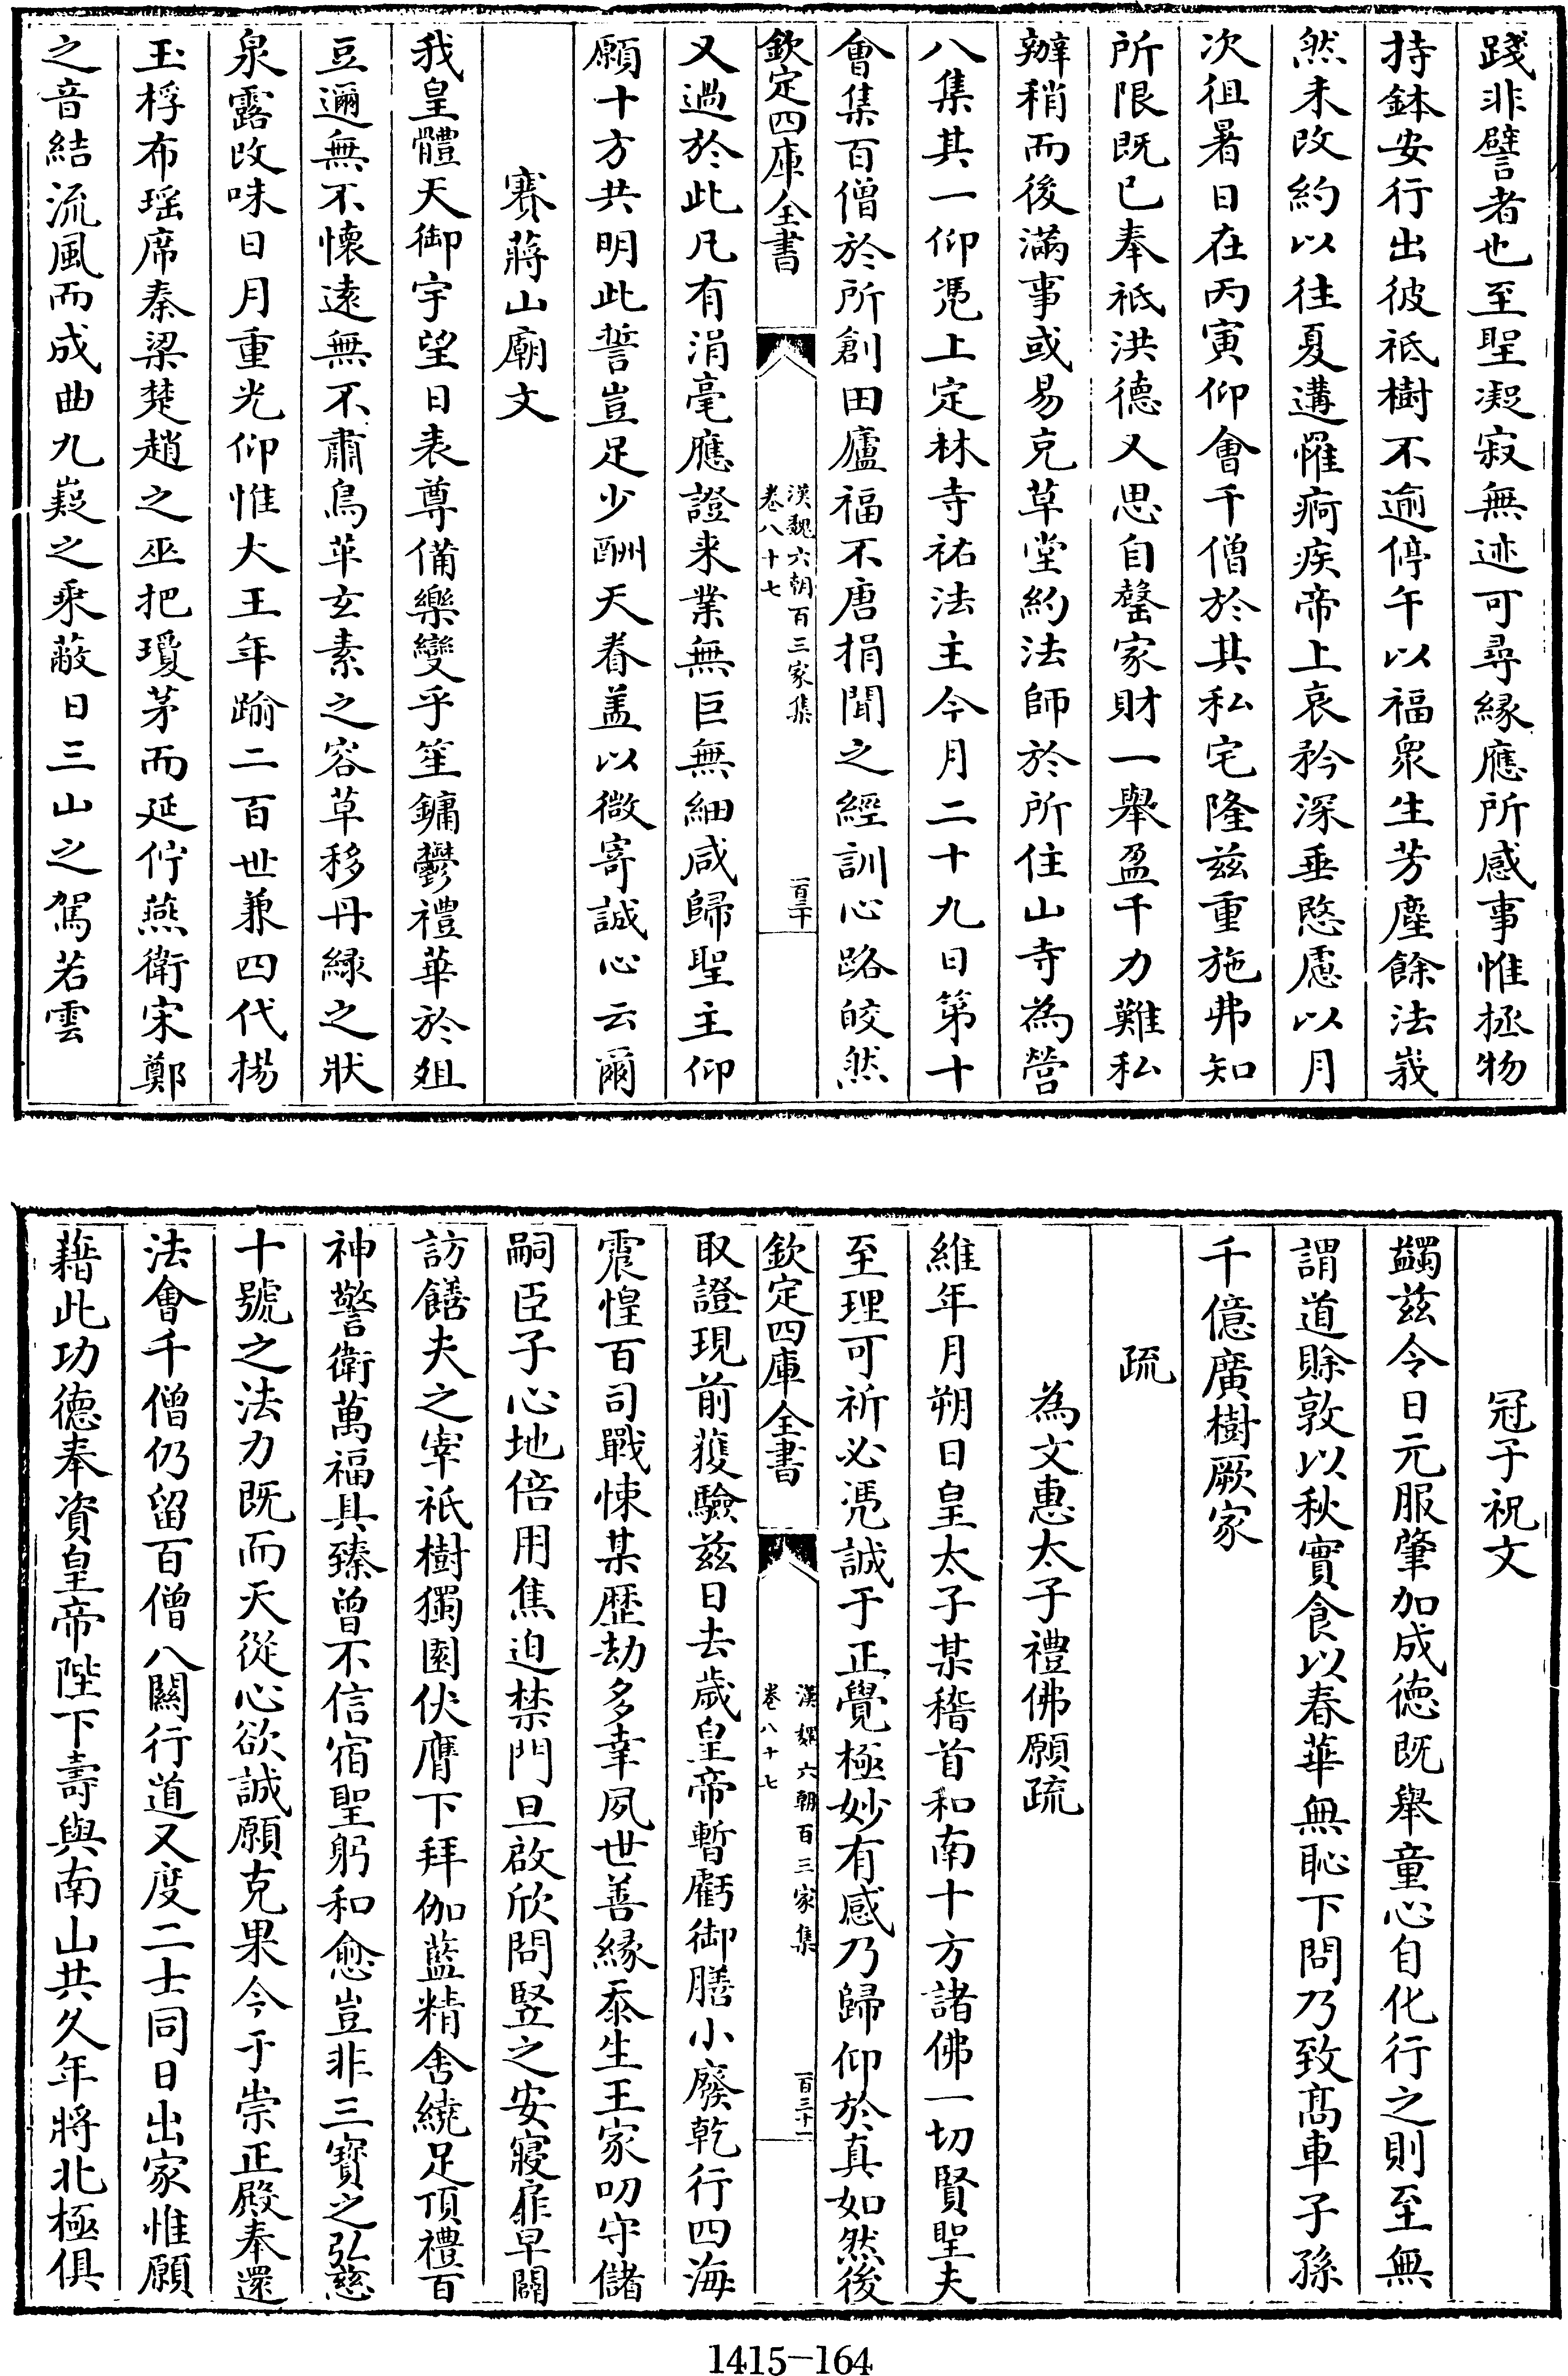 踐非譬者也至聖凝寂無迹可尋縁應所感事惟拯物
持鉢安行出彼祇樹不逾停午以福衆生芳塵餘法峩
然未改約以往夏遘罹痾疾帝上哀矜深垂愍慮以月
次徂暑日在丙寅仰會千僧於其私宅隆兹重施弗知
所限既已奉祗洪德又思自罄家財一舉盈千力難私
辦稍而後滿事或易克草堂約法師於所住山寺為營
八集其一仰憑上定林寺祐法主今月二十九日第十
會集百僧於所創田廬福不唐捐聞之經訓心路皎然
欽定四庫全書
漢魏六朝百三家集
卷八十七
一百三十
又過於此凡有涓毫應證來業無巨無細咸歸聖主仰
願十方共明此誓豈足少酬天眷盖以微寄誠心云爾
賽蔣山廟文
我皇體天御宇望日表尊備樂變乎笙鏞鬱禮華於俎
豆邇無不懷遠無不肅鳥革玄素之容草移丹緑之狀
泉露改味日月重光仰惟大王年踰二百世兼四代揚
玉桴布瑶席秦梁楚趙之巫把瓊茅而延佇燕衛宋鄭
之音結流風而成曲九嶷之乘蔽日三山之駕若雲
冠子祝文
蠲兹令日元服肇加成徳既舉童心自化行之則至無
謂道賒敦以秋實食以春華無恥下問乃致髙車子孫
千億廣樹厥家
疏
為文惠太子禮佛願疏
維年月朔日皇太子某稽首和南十方諸佛一切賢聖夫
至理可祈必憑誠于正覺極妙有感乃歸仰於真如然後
欽定四庫全書
漢魏六朝百三家集
卷八十七
一百三十一
取證現前獲驗兹日去歲皇帝暫虧御膳小廢乾行四海
震惶百司戰悚某歴劫多幸夙世善縁忝生王家叨守儲
嗣臣子心地倍用焦迫禁門旦啟欣問豎之安寢扉早闢
訪饍夫之宰祇樹獨園伏膺下拜伽藍精舍繞足頂禮百
神警衛萬福具臻曾不信宿聖躬和愈豈非三寳之弘慈
十號之法力既而天從心欲誠願克果今于崇正殿奉還
法會千僧仍留百僧八闗行道又度二士同日出家惟願
藉此功德奉資皇帝陛下壽與南山共久年將北極俱
1415-164